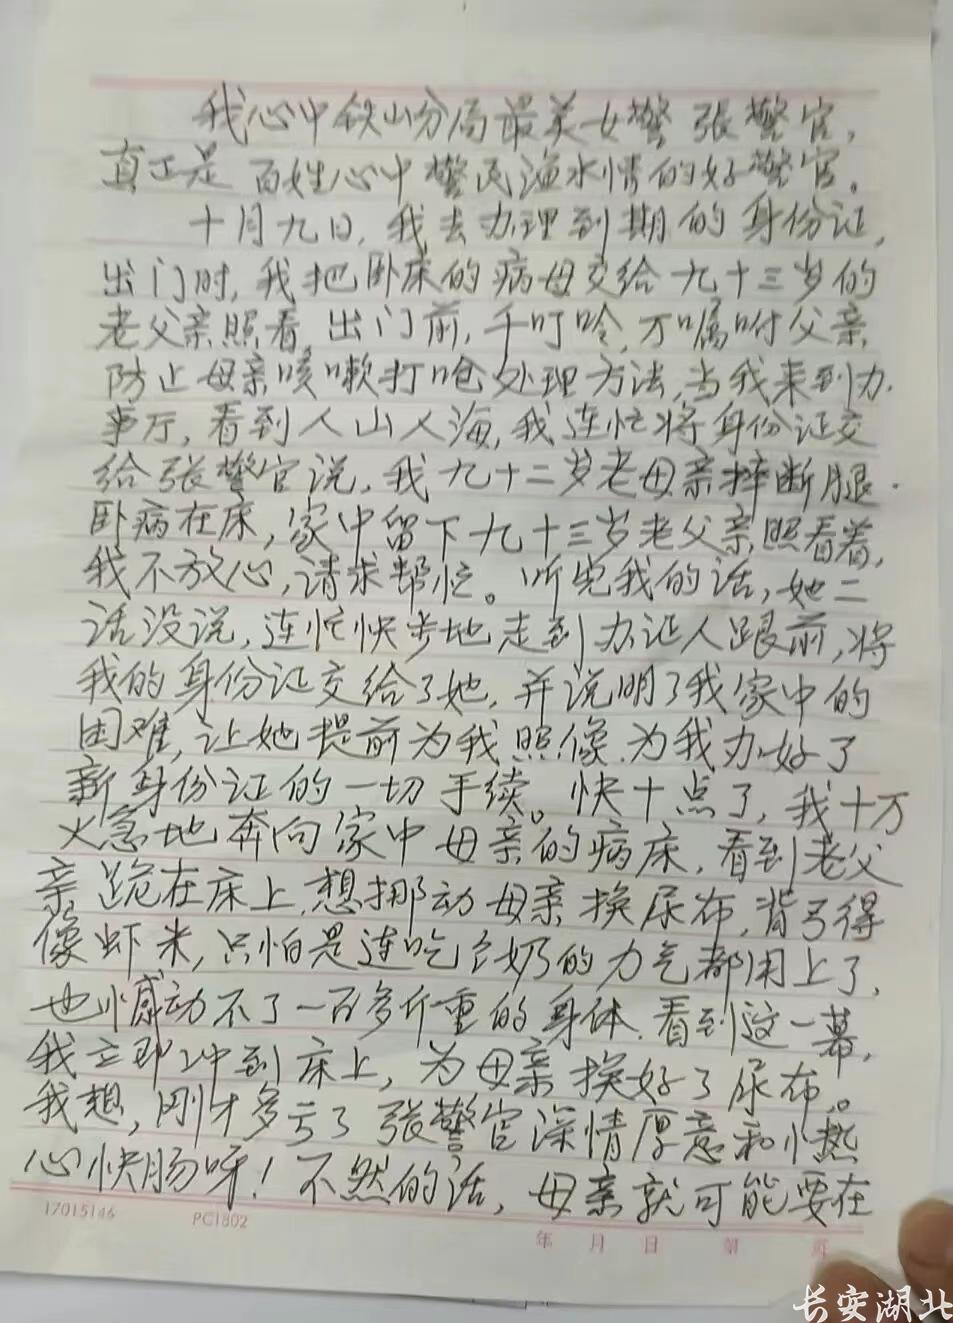 我心中铁山分局最美女警张警官,
真正是百姓心中警民渔水情的好警官。
十月九日,我去办理到期的身份证,
出门时,我把卧床的病母交给九十三岁的
老父亲照看,出门前,千叮呤,万嘱咐父亲
防止母亲咳嗽打呛处理方法,当我来到办
事厅,看到人山人海,我连忙将身份证交
给张警官说,我九十二岁老母亲摔断腿
卧病在床,家中留下九十三岁老父亲照看着,
我不放心,请求帮忙。听完我的话,她二
话没说,连忙快步地走到办证人跟前,将
我的身份证交给了她,并说明了我家中的
困难,让她提前为我照像,为我办好了
新身份证的一切手续。快十点了,我十万
火急地奔向家中母亲的病床,看到老父
亲跪在床上,想挪动母亲换尿布,背弓得
像虾米,只怕是连吃奶的力气都用上了,
也憾动不了一百多斤重的身体.看到这一幕,
我立即冲到床上,为母亲换好了尿布。
我想,刚才多亏了张警官深情厚意和热
心快肠呀!不然的话,母亲就可能要在
17015146 PC1802
年 月 日 第 页
长安湖北